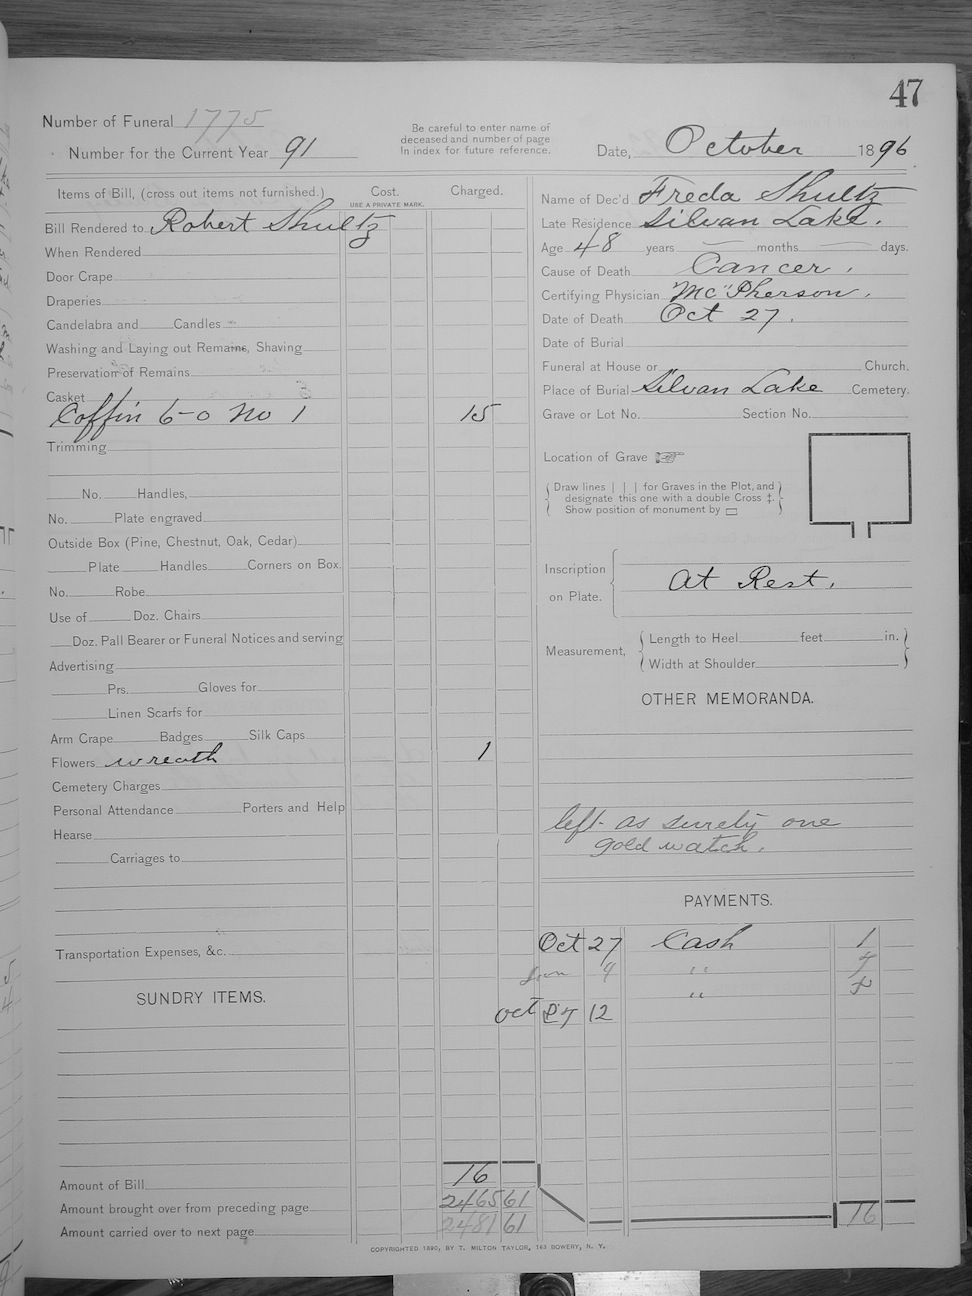 47
Number of Funeral 1775
Number for the Current Year 91
Be careful to enter name of
deceased and number of page
In index for future reference.
Date, October 1896
Items of Bill, (cross out items not furnished.) Cost. Charged.
USE A PRIVATE MARK.
Bill Rendered to Robert Shultz
When Rendered
Door Crape
Draperies
Candelabra and Candles
Washing and Laying out Remains, Shaving
Preservation of Remains
Casket
Coffin 6-0 No 1 15
Trimming
No. Handles,
No. Plate engraved
Outside Box (Pine, Chestnut, Oak, Cedar)
Plate Handles Corners on Box.
No. Robe
Use of Doz. Chairs
Doz. Pall Bearer or Funeral Notices and serving
Advertising
Prs. Gloves for
Linen Scarfs for
Arm Crape Badges Silk Caps
Flowers wreath 1
Cemetery Charges
Personal Attendance Porters and Help
Hearse
Carriages to
Transportation Expenses, &c.
SUNDRY ITEMS.
Amount of Bill 16
Amount brought over from preceding page 2465 61
Amount carried over to next page 2481 61
Name of Dec'd Freda Shultz
Late Residence Silvan Lake.
Age 48 years months days.
Cause of Death Cancer.
Certifying Physician McPherson.
Date of Death Oct 27.
Date of Burial
Funeral at House or " Church.
Place of Burial Silvan Lake Cemetery.
Grave or Lot No. Section No.
Location of Grave
Draw lines | | | for Graves in the Plot, and
designate this one with a double Cross ‡.
Show position of monument by
Inscription
on Plate.
At Rest.
Measurement,
Length to Heel feet in.
Width at Shoulder
OTHER MEMORANDA.
left as surety one
gold watch.
PAYMENTS.
Oct 27 Cash 1
9 "
"
Oct 12
16
COPYRIGHTED 1890, BY T. MILTON TAYLOR, 163 BOWERY, N. Y.